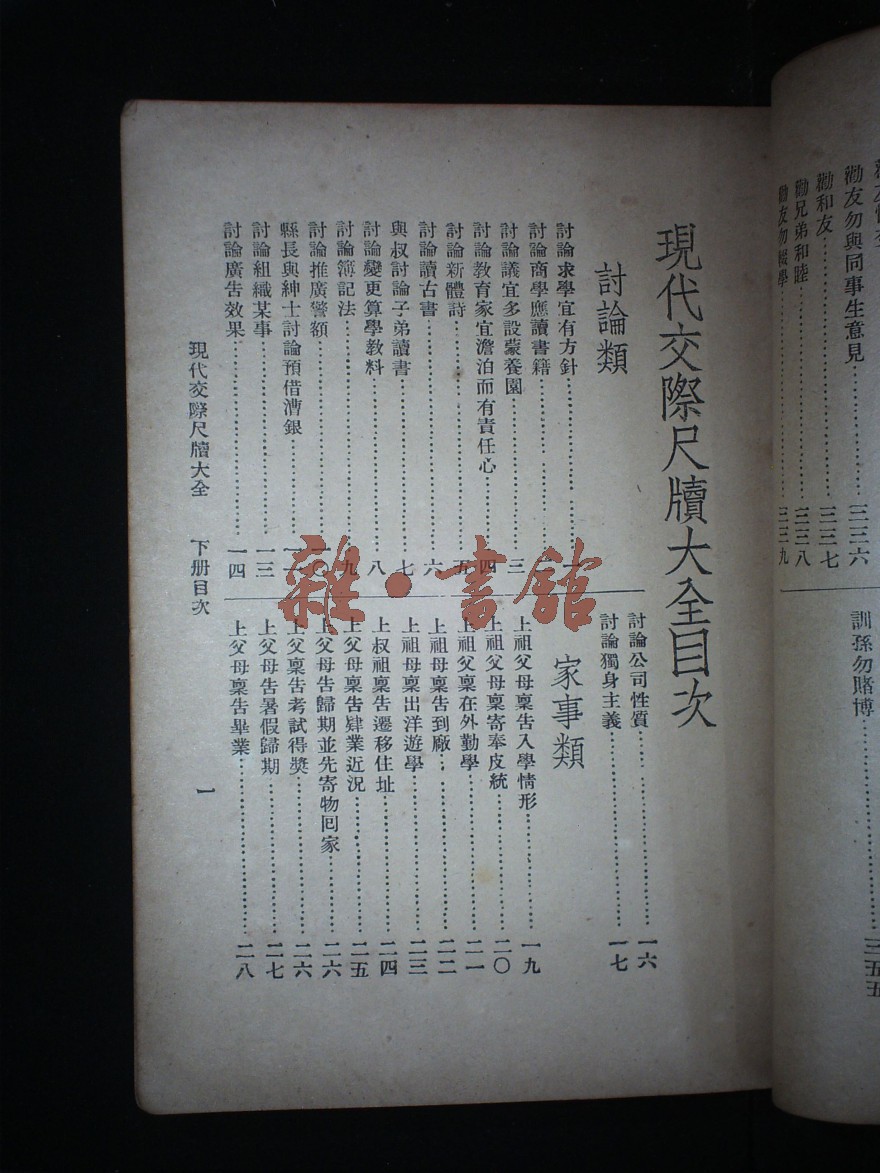 勸友勿與同事生意見……三三六
勸和友……三三七
勸兄弟和睦……三三八
勸友勿輟學……三三九
訓孫勿賭博……三五五
現代交際尺牘大全目次
討論類
討論求學宜有方針……一
討論商學應讀書籍……
討論議宜多設蒙養園……三
討論教育家宜澹泊而有責任心……四
討論新體詩……五
討論讀古書……六
與叔討論子弟讀書……七
討論變更算學教科……八
討論簿記法……九
討論推廣警額……一〇
縣長與紳士討論預借漕銀……一二
討論組織某事……一三
討論廣告效果……一四
討論公司性質……一六
討論獨身主義……一七
家事類
上祖父母稟告入學情形……一九
上祖父母稟寄奉皮統……二〇
上祖父稟在外勤學……二一
上祖母稟告到廠……二二
上祖母稟出洋遊學……二三
上叔祖稟告遷移住址……二四
上父母稟告肄業近況……二五
上父母告歸期並先寄物回家……二六
上父稟告考試得獎……二六
上父母告暑假歸期……二七
上父母稟告畢業……二八
現代交際尺牘大全 下册目次 一
雜·書館